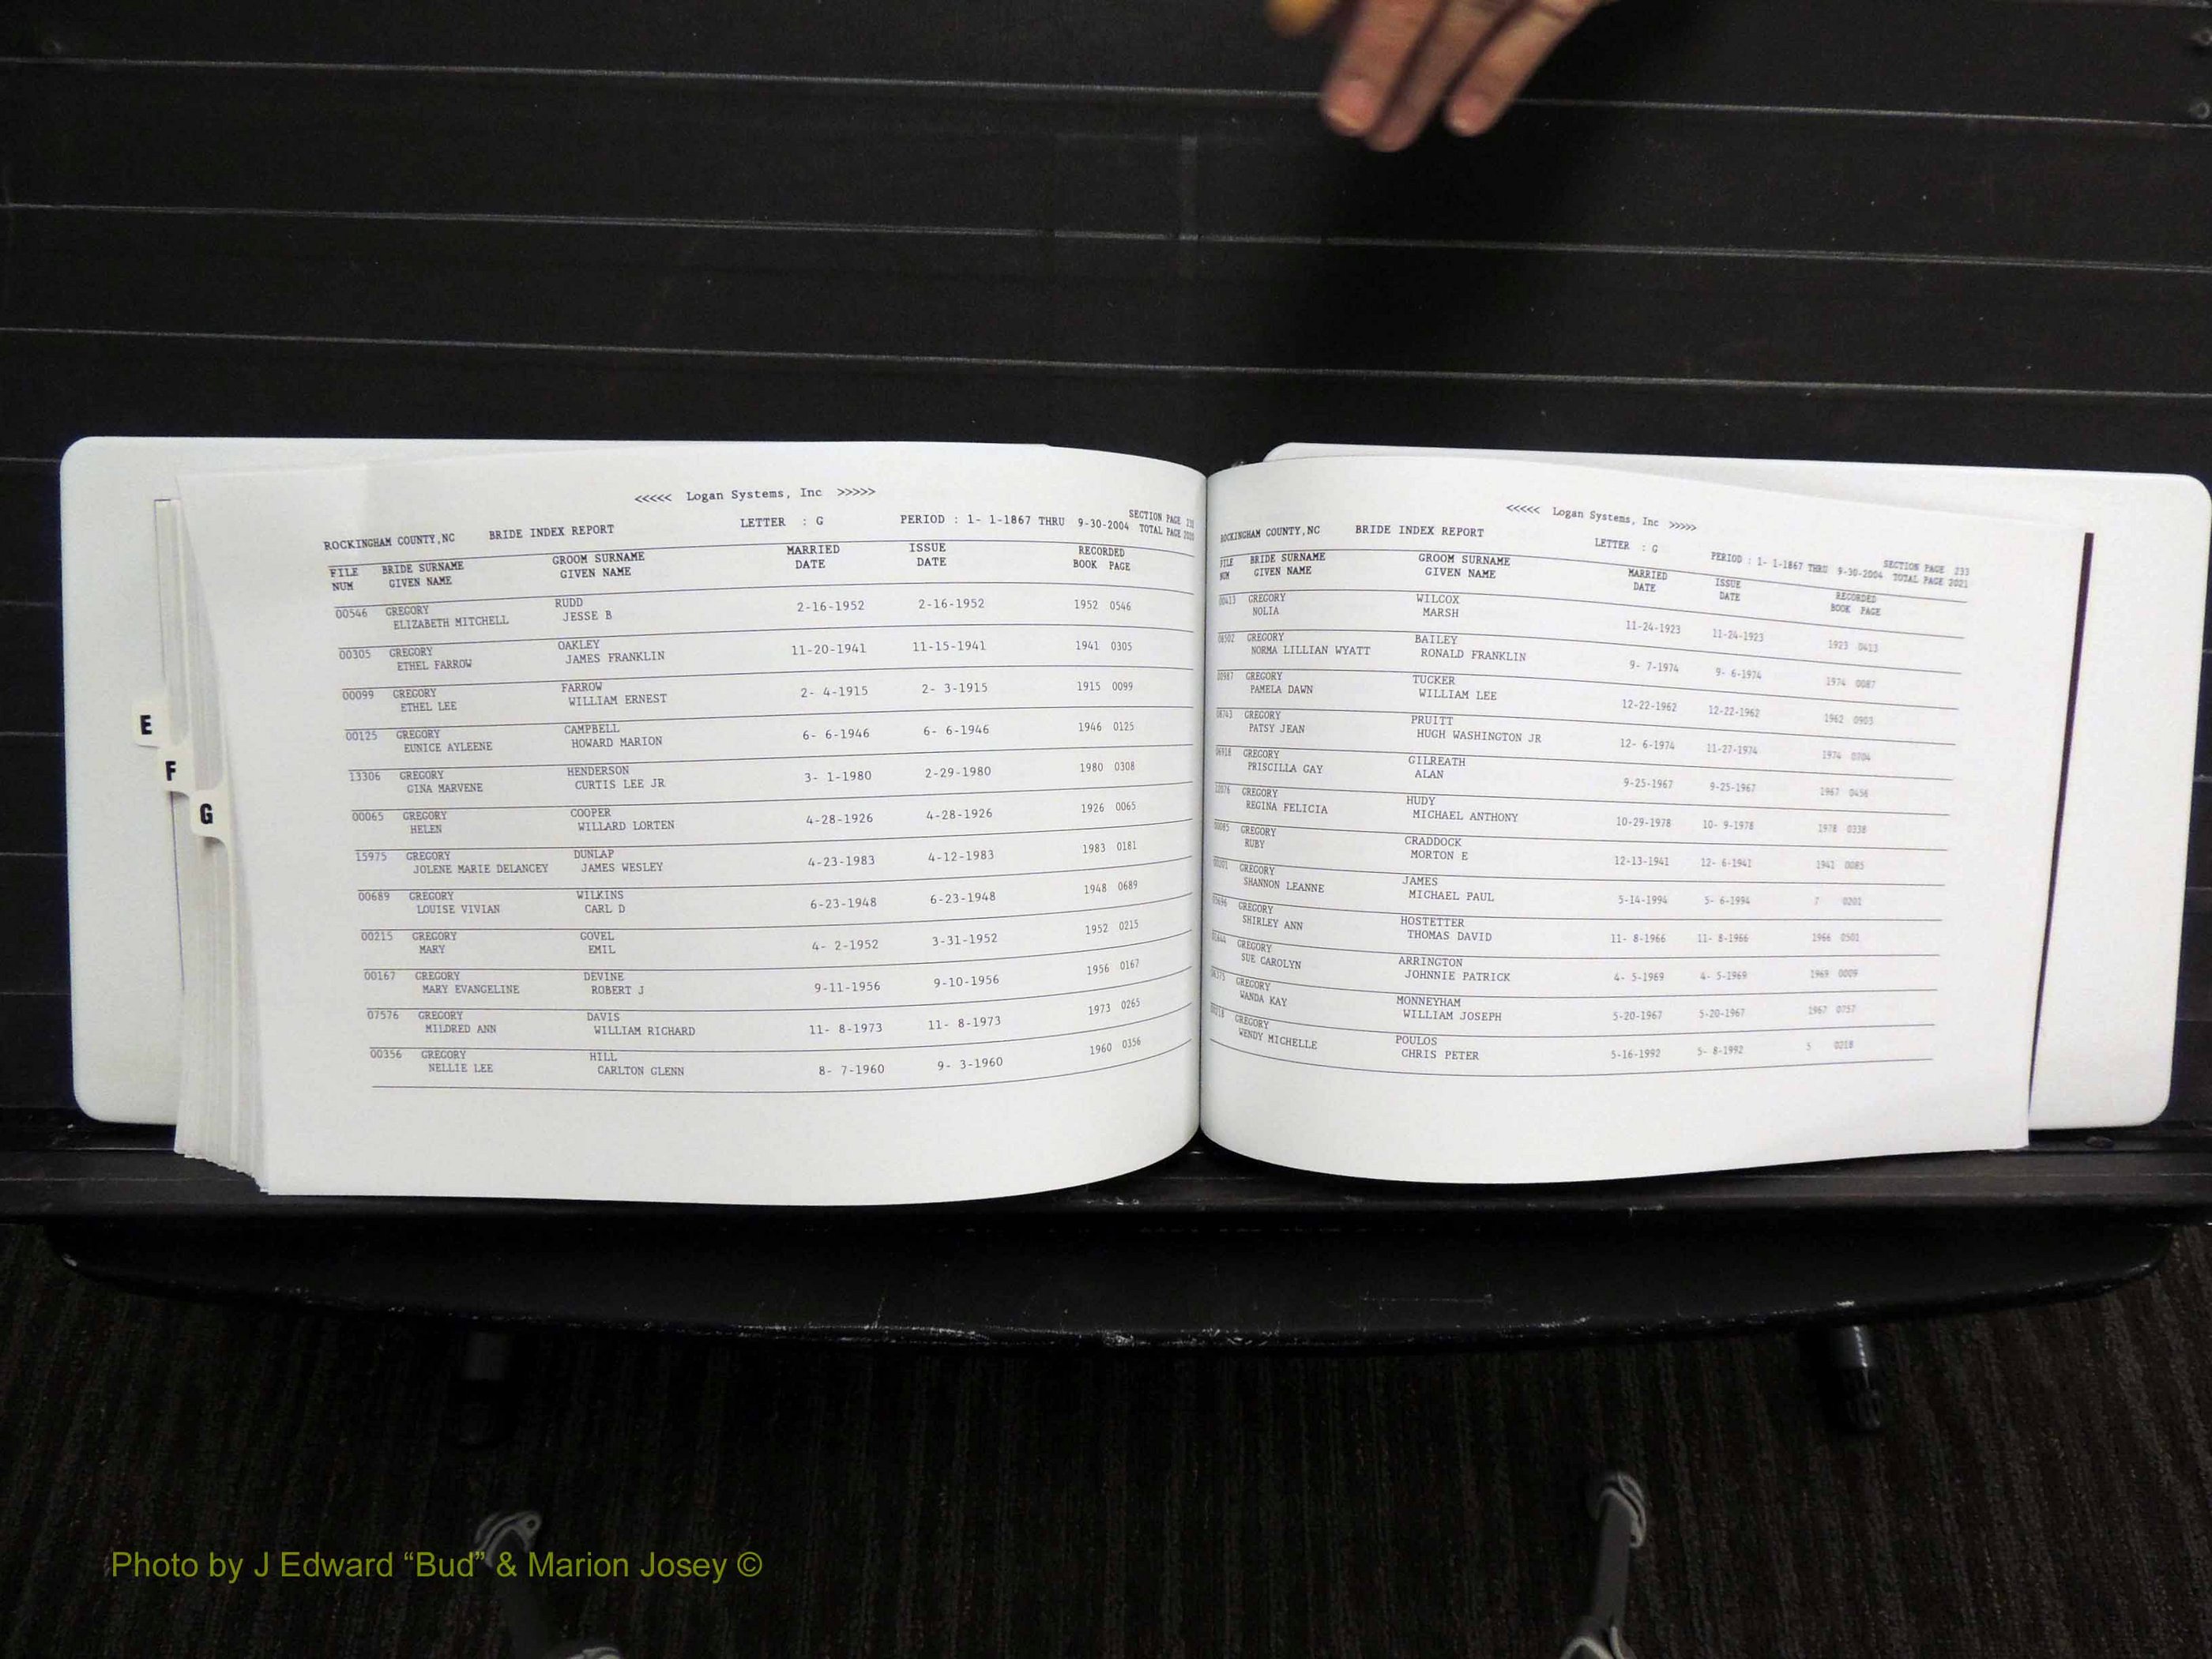 <<<<< Logan Systems, Inc >>>>>
ROCKINGHAM COUNTY,NC BRIDE INDEX REPORT LETTER : G PERIOD : 1- 1-1867 THRU 9-30-2004 SECTION PAGE
TOTAL PAGE
FILE BRIDE SURNAME GROOM SURNAME MARRIED ISSUE RECORDED
NUM GIVEN NAME GIVEN NAME DATE DATE BOOK PAGE
00546 GREGORY RUDD 2-16-1952 2-16-1952 1952 0546
ELIZABETH MITCHELL JESSE B
00305 GREGORY OAKLEY 11-20-1941 11-15-1941 1941 0305
ETHEL FARROW JAMES FRANKLIN
00099 GREGORY FARROW 2- 4-1915 2- 3-1915 1915 0099
ETHEL LEE WILLIAM ERNEST
00125 GREGORY CAMPBELL 6- 6-1946 6- 6-1946 1946 0125
EUNICE AYLEENE HOWARD MARION
13306 GREGORY HENDERSON 3- 1-1980 2-29-1980 1980 0308
GINA MARVENE CURTIS LEE JR
00065 GREGORY COOPER 4-28-1926 4-28-1926 1926 0065
HELEN WILLARD LORTEN
15975 GREGORY DUNLAP 4-23-1983 4-12-1983 1983 0181
JOLENE MARIE DELANCEY JAMES WESLEY
00689 GREGORY WILKINS 6-23-1948 6-23-1948 1948 0689
LOUISE VIVIAN CARL D
00215 GREGORY GOVEL 4- 2-1952 3-31-1952 1952 0215
MARY EMIL
00167 GREGORY DEVINE 9-11-1956 9-10-1956 1956 0167
MARY EVANGELINE ROBERT J
07576 GREGORY DAVIS 11- 8-1973 11- 8-1973 1973 0265
MILDRED ANN WILLIAM RICHARD
00356 GREGORY HILL 8- 7-1960 9- 3-1960 1960 0356
NELLIE LEE CARLTON GLENN
E
F
G
<<<<< Logan Systems, Inc >>>>>
ROCKINGHAM COUNTY,NC BRIDE INDEX REPORT LETTER : G PERIOD : 1- 1-1867 THRU 9-30-2004 SECTION PAGE 233
TOTAL PAGE 2021
FILE BRIDE SURNAME GROOM SURNAME MARRIED ISSUE RECORDED
NUM GIVEN NAME GIVEN NAME DATE DATE BOOK PAGE
00413 GREGORY WILCOX 11-24-1923 11-24-1923 1923 0413
NOLIA MARSH
GREGORY BAILEY 9- 7-1974 9- 6-1974 1974 0087
NORMA LILLIAN WYATT RONALD FRANKLIN
GREGORY TUCKER 12-22-1962 12-22-1962 1962
PAMELA DAWN WILLIAM LEE
GREGORY PRUITT 12- 6-1974 11-27-1974 1974
PATSY JEAN HUGH WASHINGTON JR
GREGORY GILREATH 9-25-1967 9-25-1967 1967
PRISCILLA GAY ALAN
GREGORY HUDY 10-29-1978 10- 9-1978 1978 0338
REGINA FELICIA MICHAEL ANTHONY
00085 GREGORY CRADDOCK 12-13-1941 12- 6-1941 1941 0085
RUBY MORTON E
GREGORY JAMES 5-14-1994 5- 6-1994 7
SHANNON LEANNE MICHAEL PAUL
GREGORY HOSTETTER 11- 8-1966 11- 8-1966 1966 0501
SHIRLEY ANN THOMAS DAVID
GREGORY ARRINGTON 4- 5-1969 4- 5-1969 1969 0009
SUE CAROLYN JOHNNIE PATRICK
GREGORY MONNEYHAM 5-20-1967 5-20-1967 1967 0757
WANDA KAY WILLIAM JOSEPH
00218 GREGORY POULOS 5-16-1992 5- 8-1992 5 0218
WENDY MICHELLE CHRIS PETER
Photo by J Edward “Bud” & Marion Josey ©